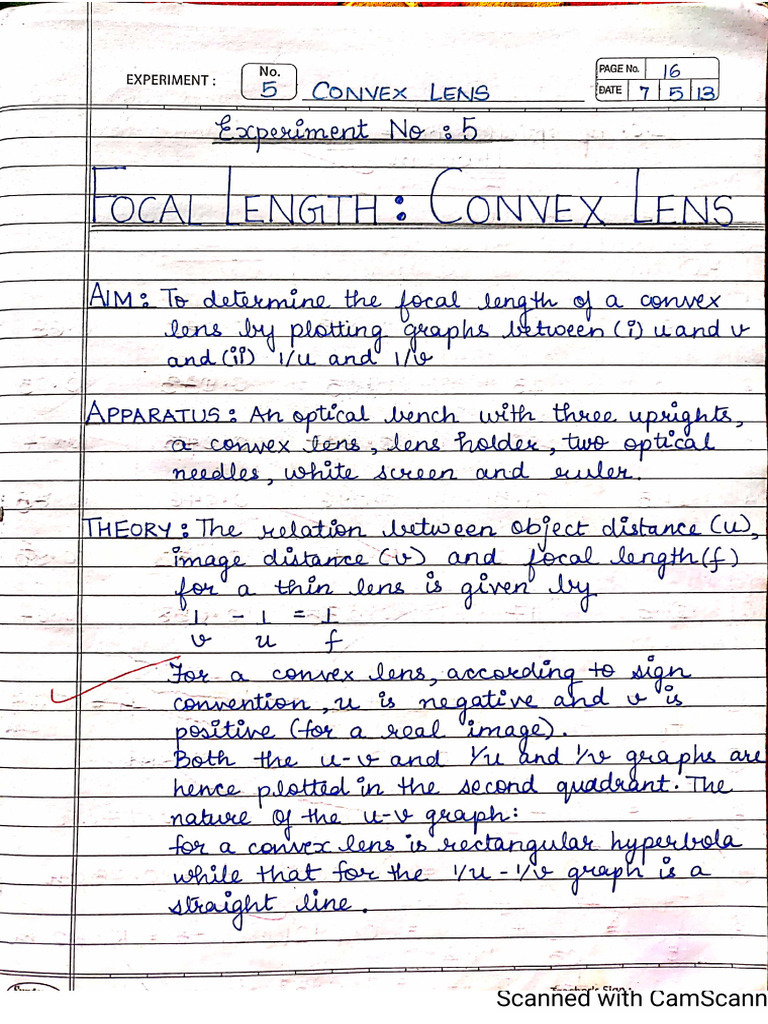 EXPERIMENT : No. 5 CONVEX LENS PAGE No. 16
DATE 7 5 13
Experiment No : 5
FOCAL LENGTH : CONVEX LENS
AIM : To determine the focal length of a convex
lens by plotting graphs between (i) u and v
and (ii) 1/u and 1/v
APPARATUS : An optical bench with three uprights,
a convex lens, lens holder, two optical
needles, white screen and ruler.
THEORY : The relation between object distance (u),
image distance (v) and focal length (f)
for a thin lens is given by
1 - 1 = 1
v u f
For a convex lens, according to sign
convention, u is negative and v is
positive (for a real image).
Both the u-v and 1/u and 1/v graphs are
hence plotted in the second quadrant. The
nature of the u-v graph:
for a convex lens is rectangular hyperbola
while that for the 1/u - 1/v graph is a
straight line.
Scanned with CamScann